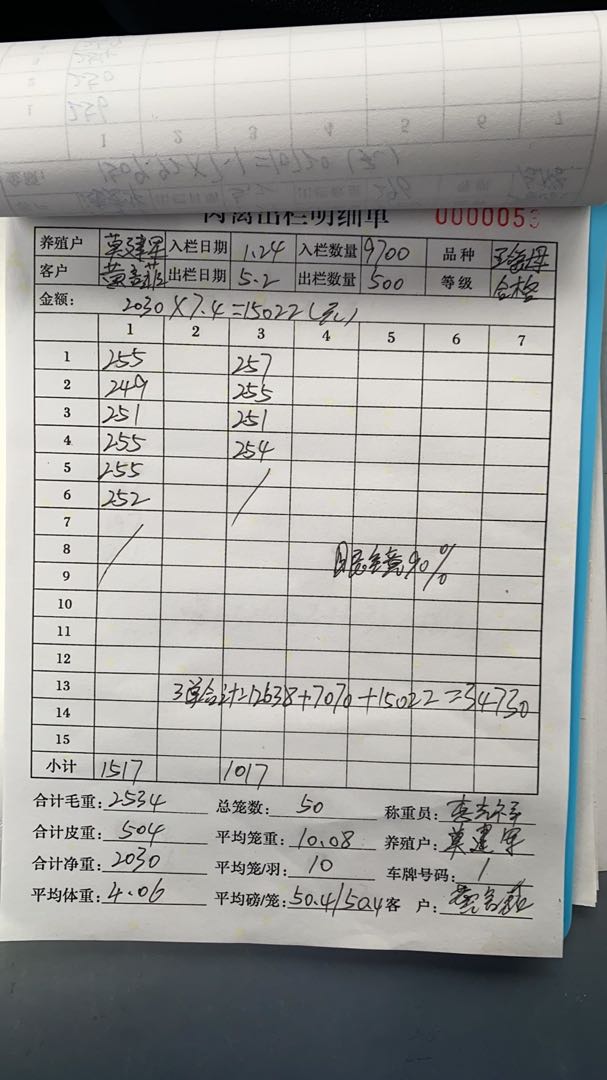 肉禽出栏明细单 0000053
养殖户 莫建军 入栏日期 1.24 入栏数量 9700 品种
客户 出栏日期 5.2 出栏数量 500 等级 合格
金额: 2030×7.4=15022(元)
1 2 3 4 5 6 7
1 255 257
2 249 255
3 251 251
4 255 254
5 255
6 252
7
8 眼镜90%
9
10
11
12
13 3单合计=12638+7070+15022=34730
14
15
小计 1517 1017
合计毛重: 2534 总笼数: 50 称重员:
合计皮重: 504 平均笼重: 10.08 养殖户: 莫建军
合计净重: 2030 平均笼/羽: 10 车牌号码: 1
平均体重: 4.06 平均磅/笼: 50.4/50.4 客 户: